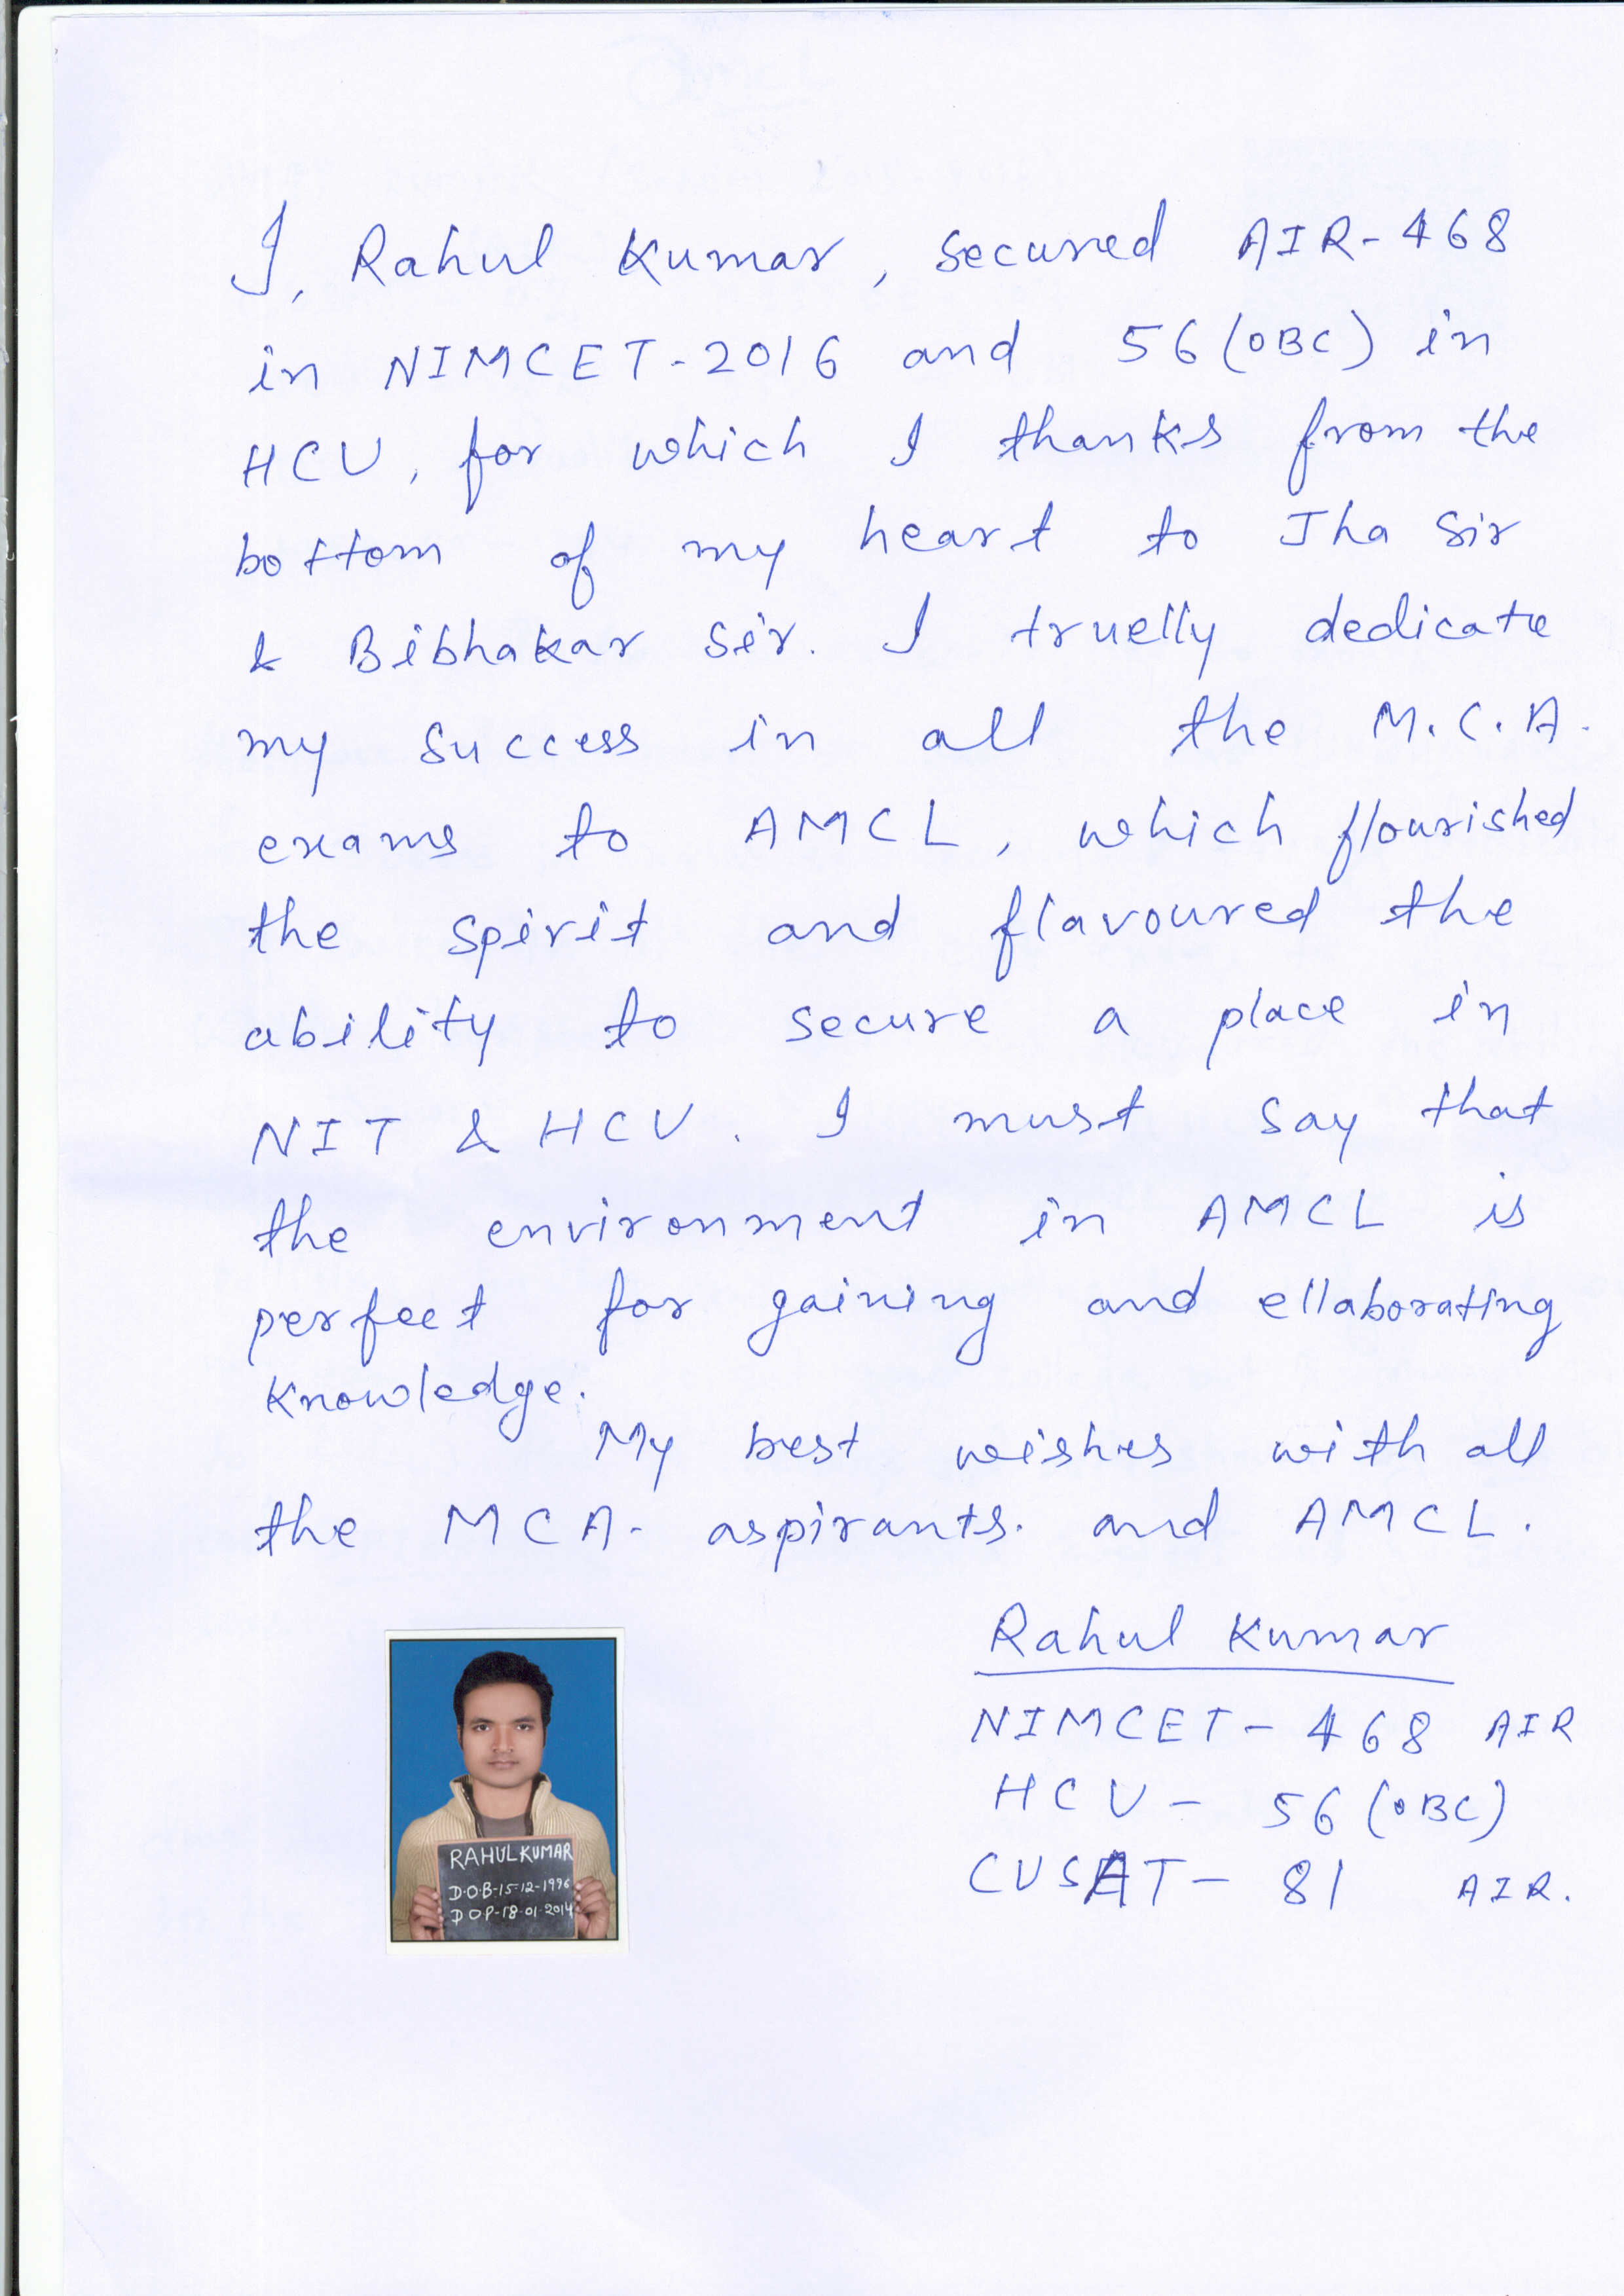 I, Rahul Kumar, secured AIR-468
in NIMCET-2016 and 56(OBC) in
HCU, for which I thanks from the
bottom of my heart to Jha Sir
& Bibhakar Sir. I truelly dedicate
my success in all the M.C.A.
exams to AMCL, which flourished
the spirit and flavoured the
ability to secure a place in
NIT & HCU. I must say that
the environment in AMCL is
perfect for gaining and ellaborating
knowledge.
My best wishes with all
the MCA- aspirants. and AMCL.
Rahul Kumar
NIMCET- 468 AIR
HCU- 56(OBC)
CUSAT- 81 AIR.
RAHUL KUMAR
D.O.B-15-12-1996
D O P-18-01-2014